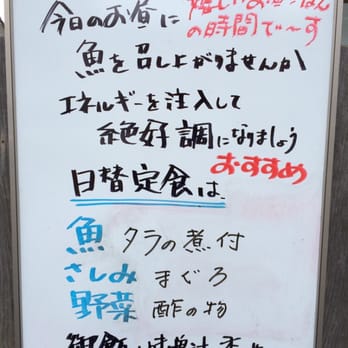 今日のお昼に
嬉しいお昼ごはん
の時間で〜す
魚を召し上がりませんか
エネルギーを注入して
絶好調になりましょう
おすすめ
日替定食は
魚 タラの煮付
さしみ まぐろ
野菜 酢の物
御飯・味噌汁・香物